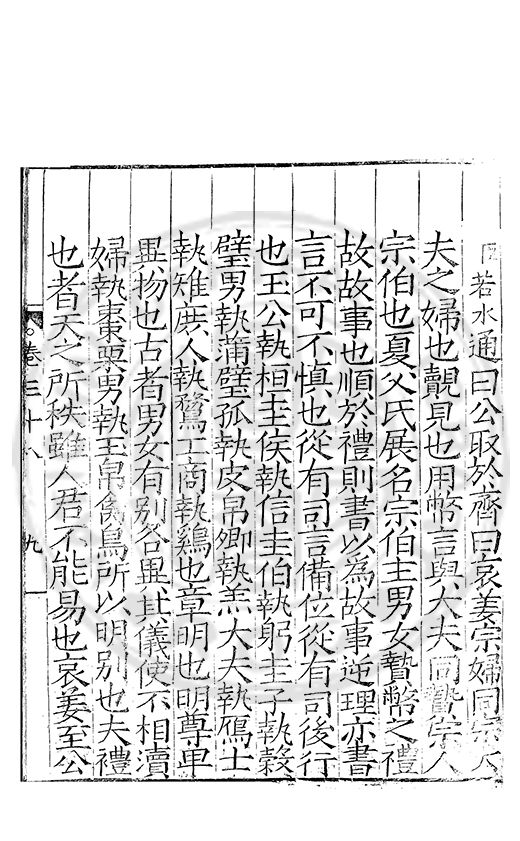 臣若水通曰公取於齊曰哀姜宗婦同宗大
夫之婦也覿見也用幣言與大夫同贄宗人
宗伯也夏父氏展名宗伯主男女贄幣之禮
故故事也順於禮則書以為故事逆理亦書
言不可不慎也從有司言備位從有司後行
也王公執桓圭侯執信圭伯執躬圭子執糓
璧男執蒲璧孤執皮帛卿執羔大夫執鴈士
執雉庶人執鶩工商執鷄也章明也明尊卑
異物也古者男女有别各異其儀使不相瀆
婦執棗栗男執玉帛禽鳥所以明别也夫禮
也者天之所秩雖人君不能易也哀姜至公
卷三十八 九